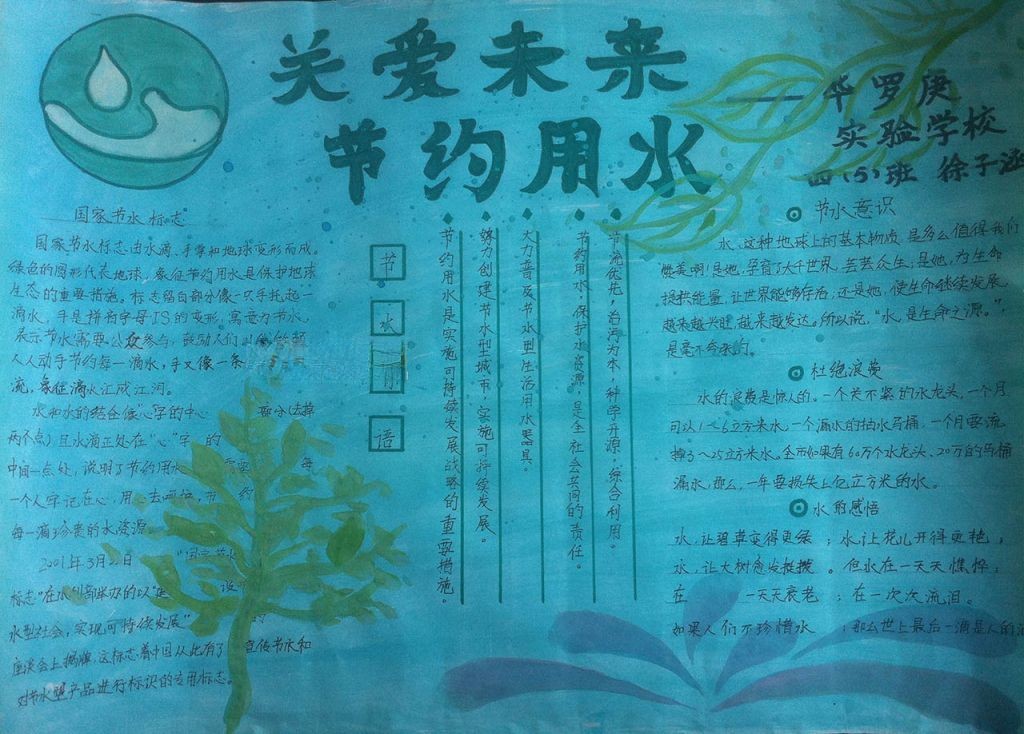 关爱未来
节约用水
——华罗庚
实验学校
四(5)班 徐子涵
国家节水标志
国家节水标志由水滴,手掌和地球变形而成。
绿色的圆形代表地球,象征节约用水是保护地球
生态的重要措施。标志留白部分像一只手托起一
滴水,手是拼音字母JS的变形,寓意为节水,
表示节水需要公众参与,鼓励人们
人人动手节约每一滴水,手又像一条
流,象征滴水汇成江河。
水和水的结合像心字的中心
两个点)且水滴正处在“心”字 的
中间一点处,说明了节约用水 需要 每
一个人牢记在心,用 去呵护,节 约
每一滴珍贵的水资源。
2001年3月22日 “国家节水
标志”在水利部举办的以“建 设节
水型社会,实现可持续发展”
座谈会上揭牌,这标志着中国从此有了 宣传节水和
对节水型产品进行标识的专用标志。
节
水
语
节流优先,治污为本,科学开源,综合利用。
节约用水,保护水资源,是全社会共同的责任。
大力普及节水型生活用水器具。
努力创建节水型城市,实施可持续发展。
节约用水是实施可持续发展战略的重要措施。
节水意识
水,这种地球上的基本物质,是多么值得我们
赞美啊!是她,孕育了大千世界,芸芸众生;是她,为生命
提供能量,让世界能够存活;还是她,使生命继续发展,
越来越兴旺,越来越发达。所以说,“水,是生命之源。”,
是毫不夸张的。
杜绝浪费
水的浪费是惊人的。一个关不紧的水龙头,一个月
可以1~6立方米水;一个漏水的抽水马桶,一个月要流
掉3~25立方米水。全市如果有60万个水龙头、20万的马桶
漏水,那么,一年要损失上亿立方米的水。
水的感悟
水,让碧草变得更绿;水,让花儿开得更艳;
水,让大树愈发挺拔。但水在一天天憔悴;
在 一天天衰老;在一次次流泪。
如果人们不珍惜水 ;那么世上最后一滴是人的